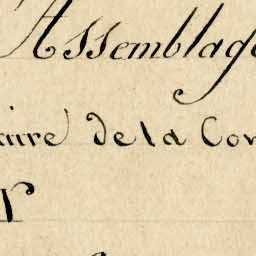 Assemblage
aire de la Con
r